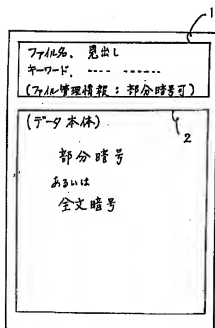 1
ファイル名、見出し
キーワード、---- ------
(ファイル管理情報:部分暗号可)
(データ本体)
2
部分暗号
あるいは
全文暗号